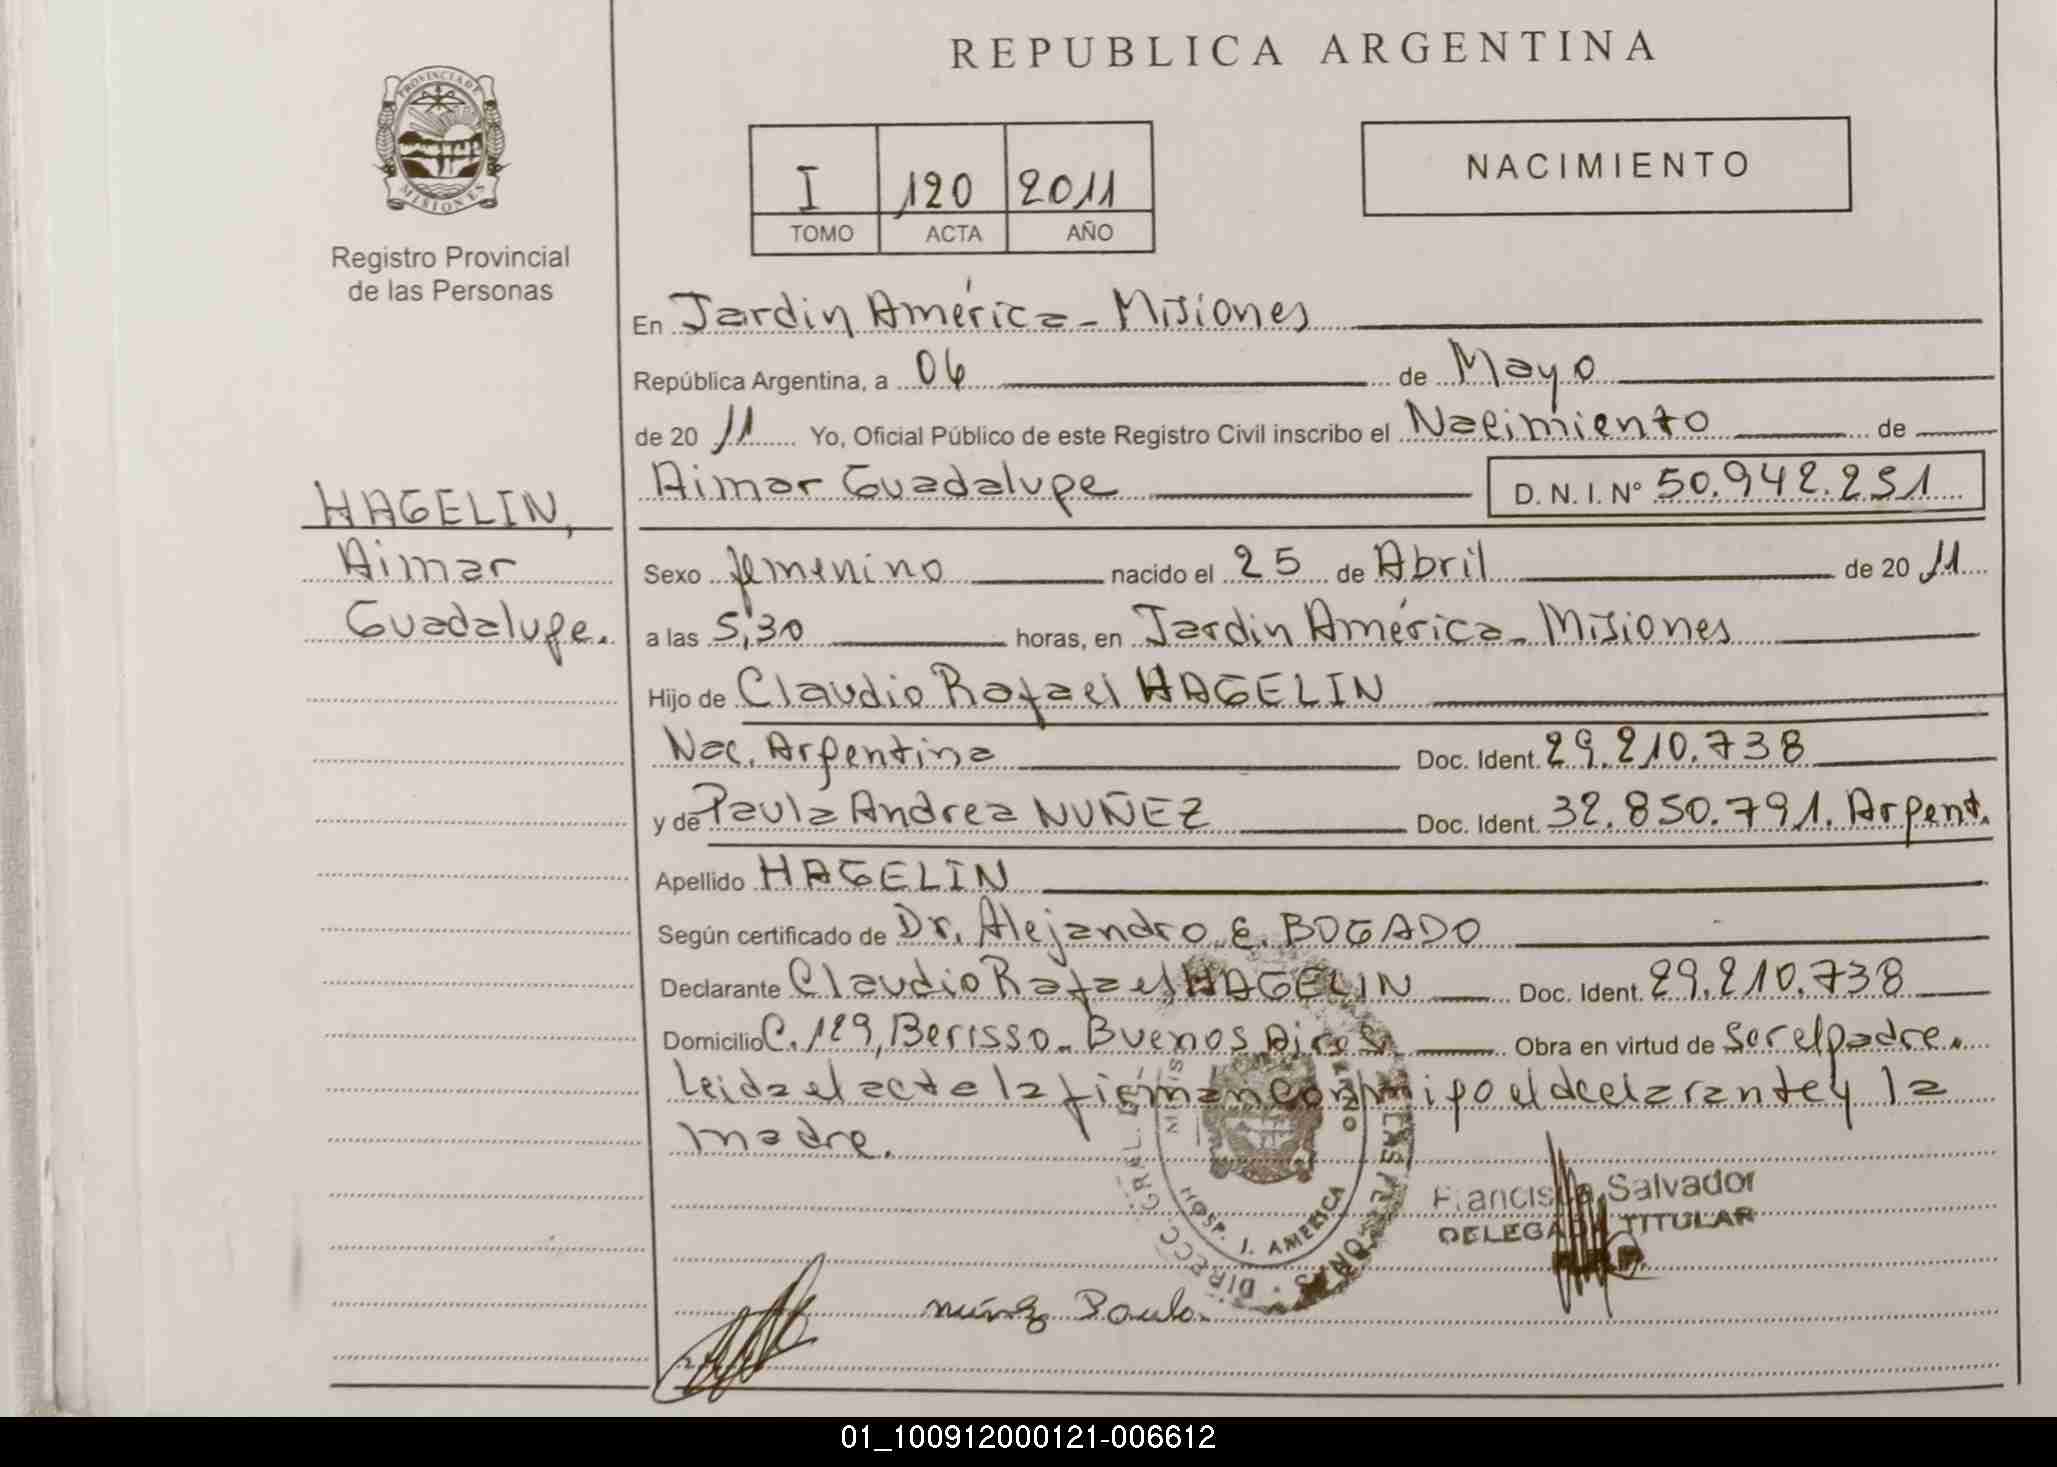 REPUBLICA ARGENTINA
PROVINCIA DE
MISIONES
Registro Provincial
de las Personas
I 120 2011
TOMO ACTA AÑO
NACIMIENTO
En Jardin América - Misiones
República Argentina, a 06 de Mayo
de 2011 Yo, Oficial Público de este Registro Civil inscribo el Nacimiento de
Aimar Guadalupe D. N. I. Nº 50.942.251
HAGELIN,
Aimar
Guadalupe.
Sexo femenino nacido el 25 de Abril de 2011
a las 5,30 horas, en Jardin América - Misiones
Hijo de Claudio Rafael HAGELIN
Nac. Argentina Doc. Ident. 29.210.738
y de Paula Andrea NUÑEZ Doc. Ident. 32.850.791. Argent.
Apellido HAGELIN
Según certificado de Dr. Alejandro E. BOGADO
Declarante Claudio Rafael HAGELIN Doc. Ident. 29.210.738
Domicilio C. 129, Berisso - Buenos Aires Obra en virtud de ser el padre.
Leida el acta la firman conmigo el declarante y la
madre.
DIRECC. GRAL. DE LAS PERSONAS
HOSP. J. AMERICA
Francisca Salvador
DELEGADA TITULAR
Núñez Paula
01_100912000121-006612